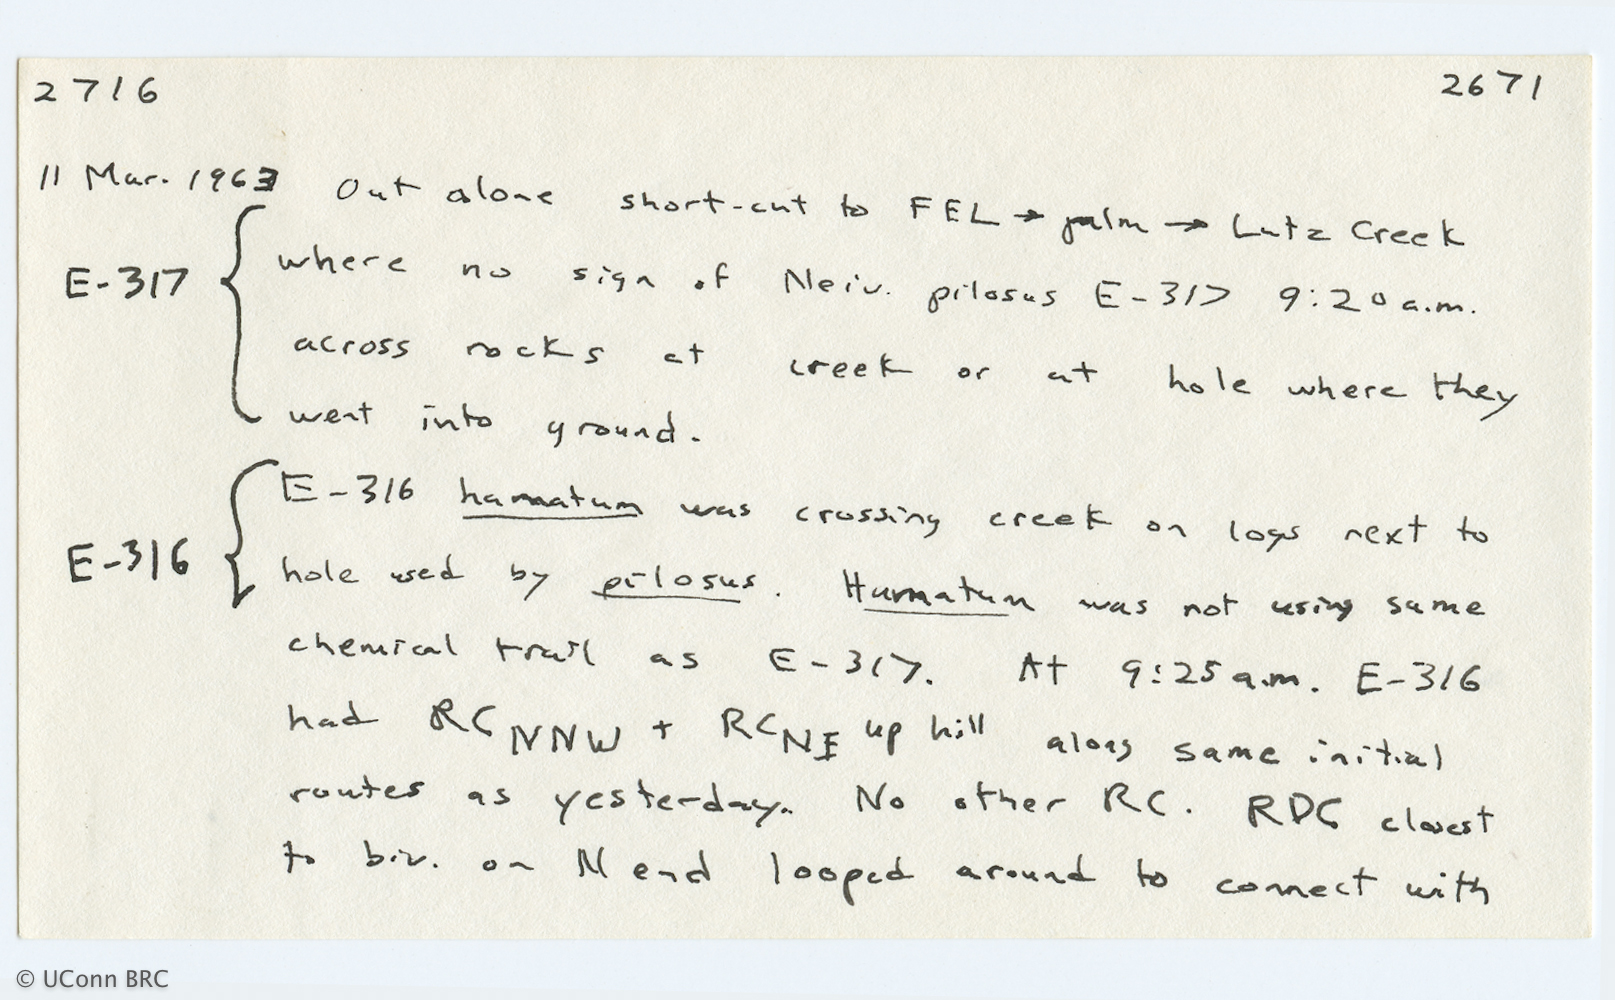 2716 2671
11 Mar. 1963 Out alone short-cut to FEL → palm → Lutz Creek
E-317 where no sign of Neiv. pilosus E-317 9:20 a.m.
across rocks at creek or at hole where they
went into ground.
E-316 hamatum was crossing creek on logs next to
E-316 hole used by pilosus. Hamatum was not using same
chemical trail as E-317. At 9:25 a.m. E-316
had RC NNW + RC NE up hill along same initial
routes as yesterday. No other RC. RDC closest
to biv. on N end looped around to connect with
© UConn BRC